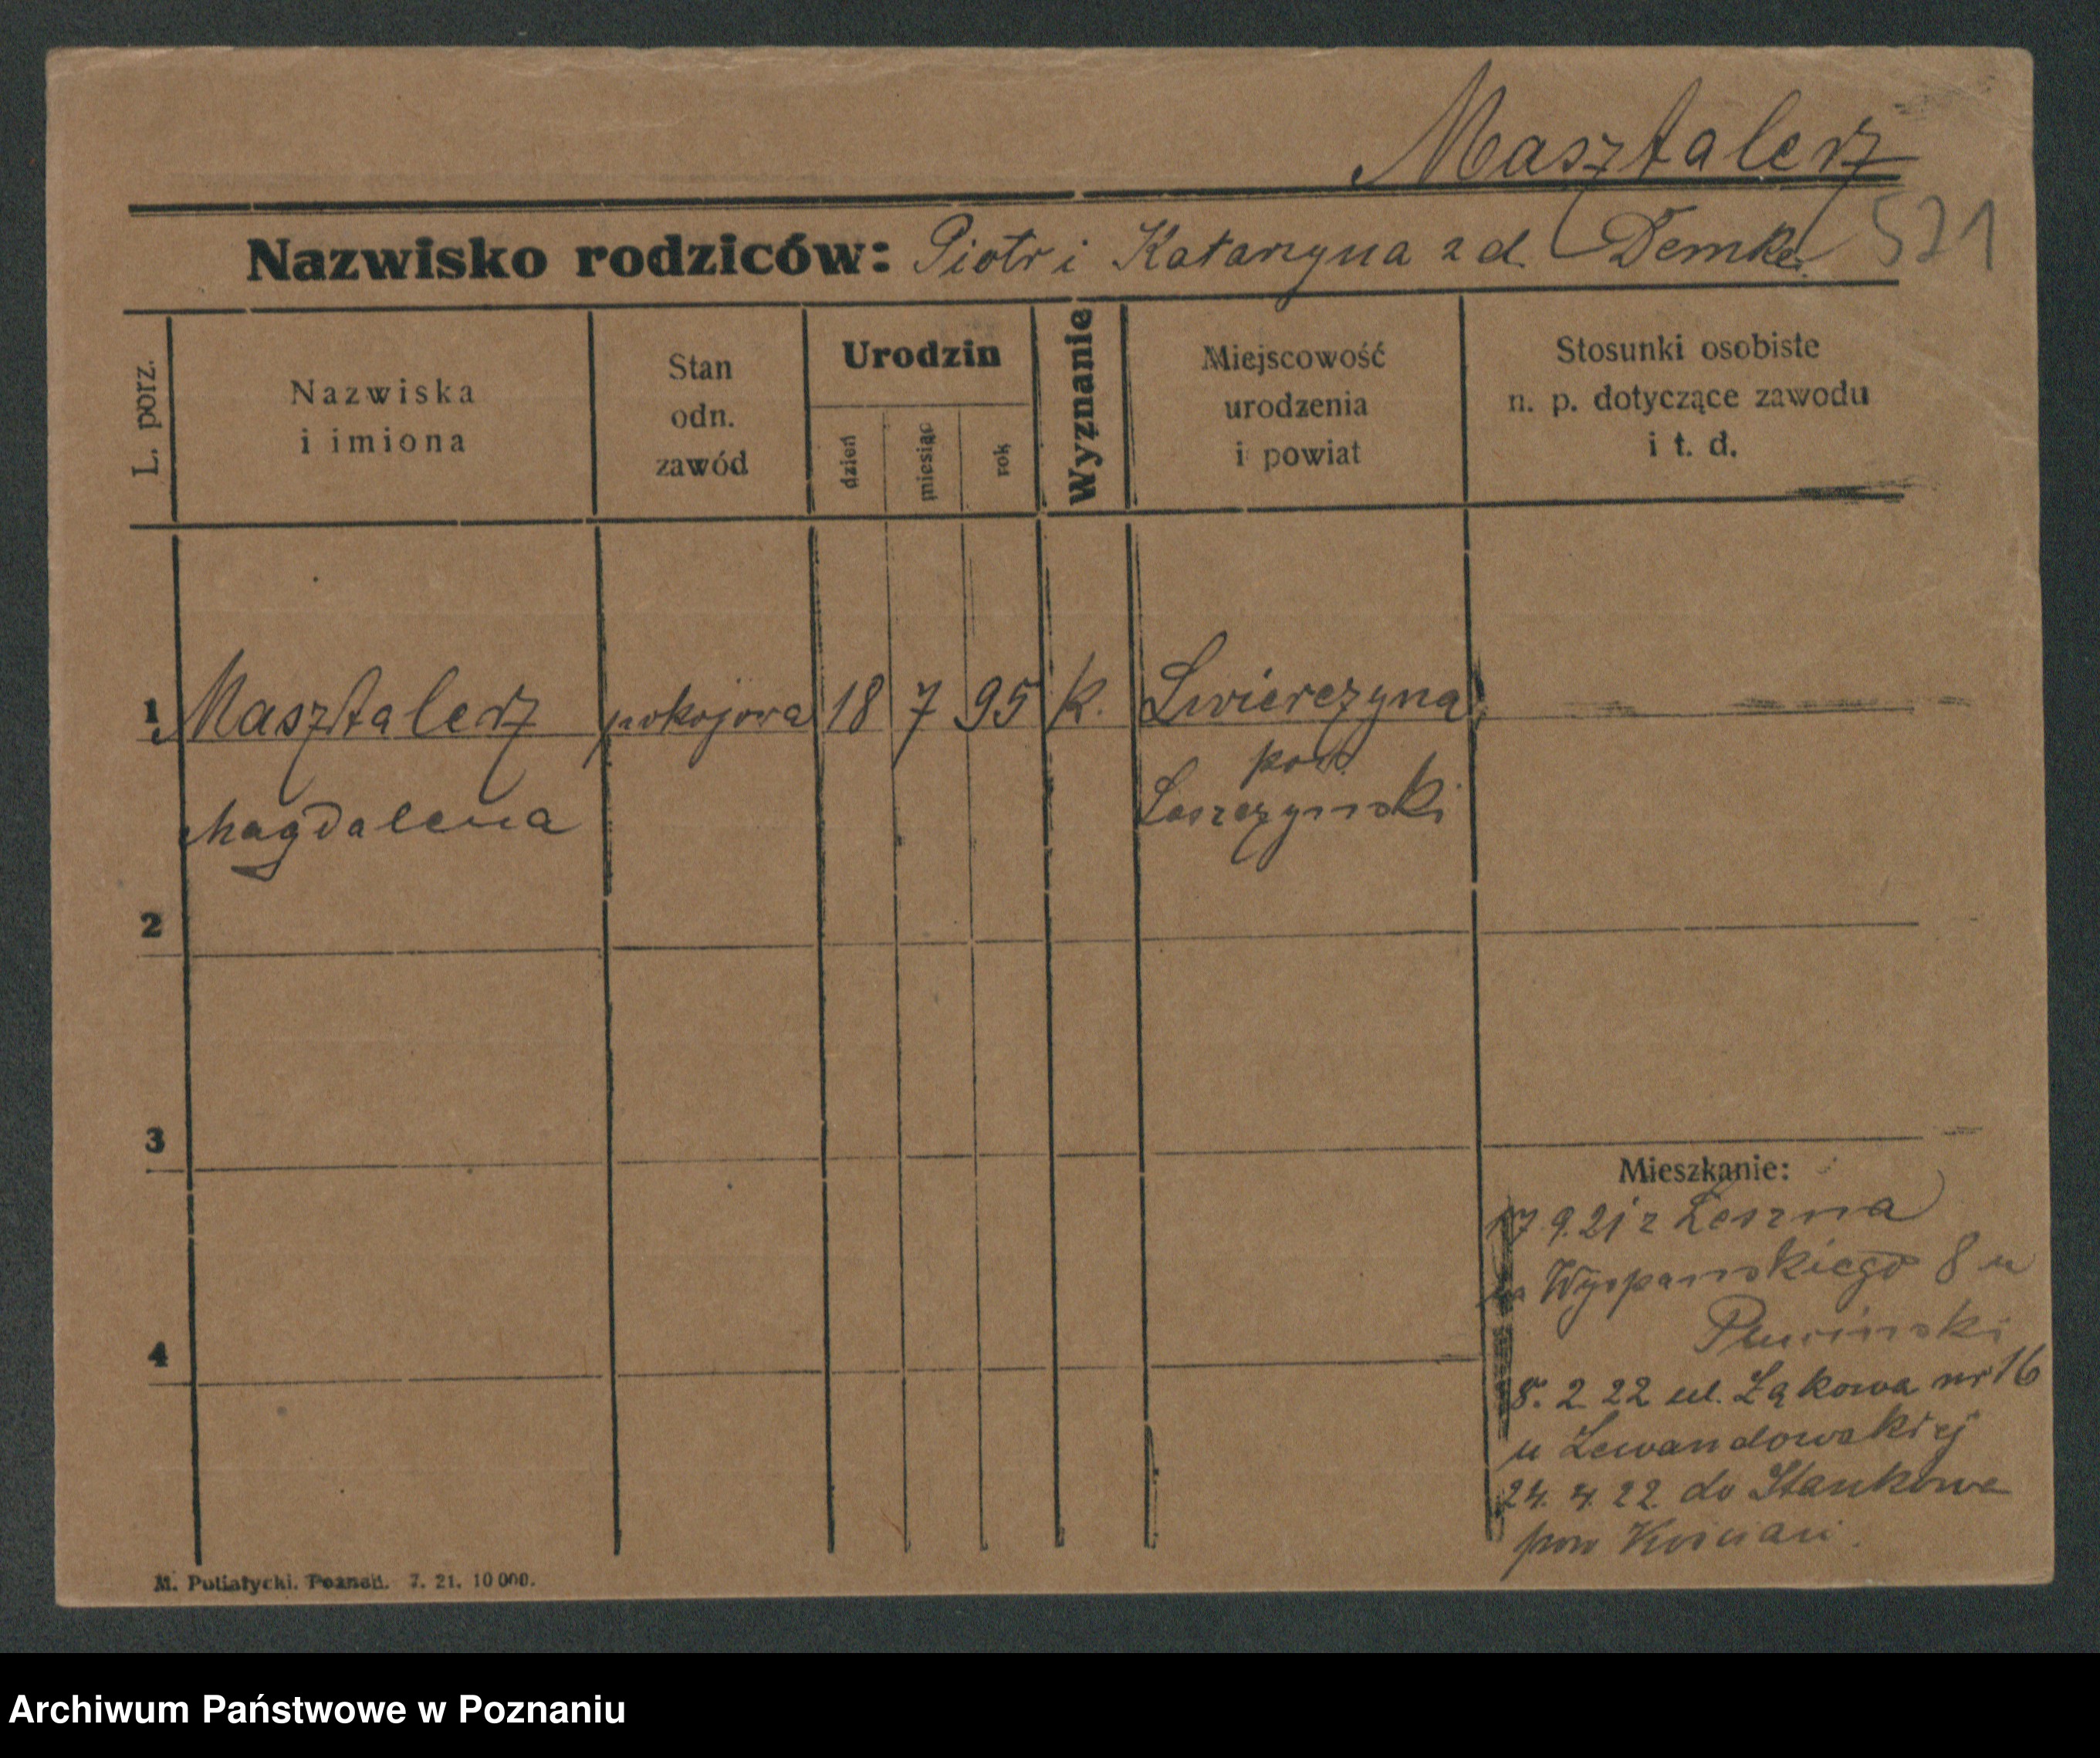 Masztalerz
Nazwisko rodziców: Piotr i Katarzyna z d. Demke
521
L. porz.
Nazwiska
i imiona
Stan
odn.
zawód
Urodzin
dzień
miesiąc
rok
Wyznanie
Miejscowość
urodzenia
i powiat
Stosunki osobiste
n. p. dotyczące zawodu
i t. d.
1 Masztalerz pokojowa 18 7 95 K. Swierczyna
pow.
Leszczynski
Magdalena
2
3
Mieszkanie:
17 9. 21 z Leszna
Wyspanskiego 8 u
4
8. 2 22 ul. Łąkowa nr 16
u Lewandowskiej
24. 4. 22. do Stankowa
pow Kościan.
M. Putiatycki. Poznań. 7. 21. 10 000.
Archiwum Państwowe w Poznaniu